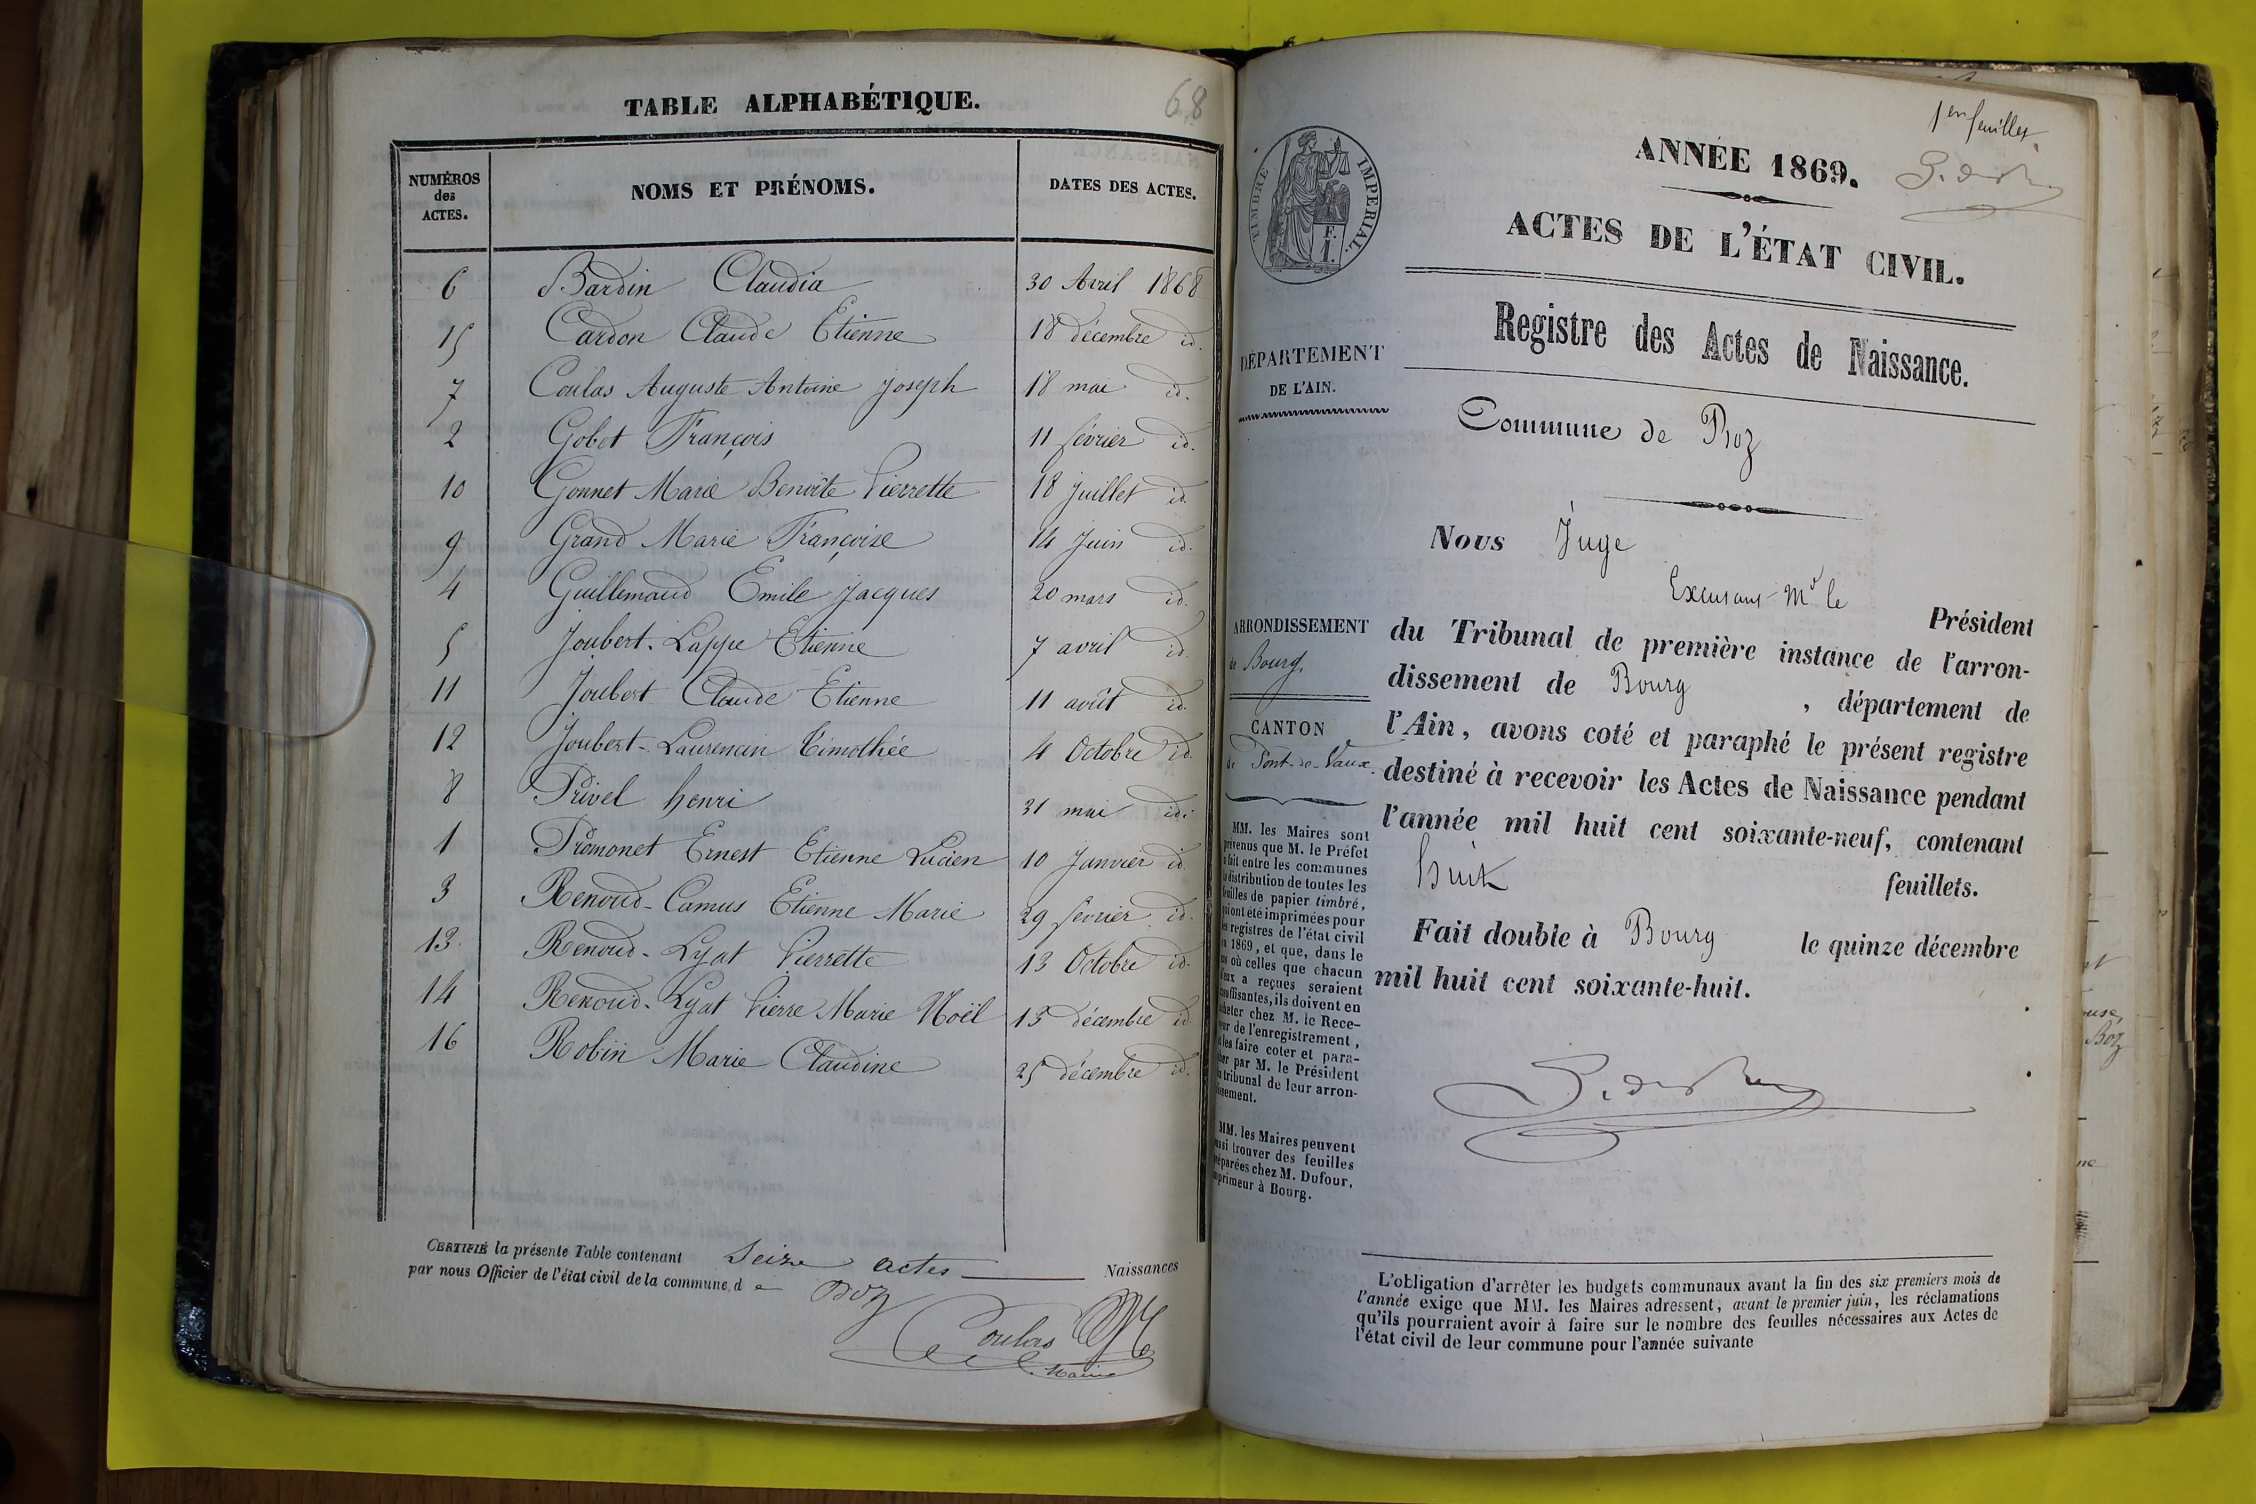 TABLE ALPHABÉTIQUE.
68
NUMÉROS
des
ACTES.
NOMS ET PRÉNOMS.
DATES DES ACTES.
6 Bardin Claudia 30 Avril 1868
15 Cardon Claude Etienne 18 décembre id.
7 Coulas Auguste Antoine Joseph 18 mai id.
2 Gobet François 11 février id.
10 Gonnet Marie Benoîte Pierrette 18 Juillet id.
9 Grand Marie Françoise 14 Juin id.
4 Guillemaud Emile Jacques 20 mars id.
5 Joubert-Lappe Etienne 7 avril id.
11 Joubert Claude Etienne 11 août id.
12 Joubert-Laurencin Timothée 4 Octobre id.
8 Privel henri 31 mai id.
1 Promonet Ernest Etienne Lucien 10 Janvier id.
3 Renoud-Camus Etienne Marie 29 février id.
13 Renoud-Lyat Pierrette 13 Octobre id.
14 Renoud-Lyat Pierre Marie Noël 15 décembre id.
16 Robin Marie Claudine 25 décembre id.
CERTIFIÉ la présente Table contenant Seize actes Naissances
par nous Officier de l'état civil de la commune d e Boz
Coulas
Maire
1er feuillet.
ANNÉE 1869.
ACTES DE L'ÉTAT CIVIL.
TIMBRE IMPÉRIAL.
Registre des Actes de Naissance.
DÉPARTEMENT
DE L'AIN.
Commune de Boz
Nous Juge
Excusant Mr le
Président
du Tribunal de première instance de l'arron-
dissement de Bourg , département de
l'Ain, avons coté et paraphé le présent registre
destiné à recevoir les Actes de Naissance pendant
l'année mil huit cent soixante-neuf, contenant
huit feuillets.
Fait double à Bourg le quinze décembre
mil huit cent soixante-huit.
ARRONDISSEMENT
de Bourg.
CANTON
de Pont-de-Vaux.
MM. les Maires sont
prévenus que M. le Préfet
a fait entre les communes
la distribution de toutes les
feuilles de papier timbré,
qui ont été imprimées pour
les registres de l'état civil
en 1869, et que, dans le
cas où celles que chacun
d'eux a reçues seraient
insuffisantes, ils doivent en
acheter chez M. le Rece-
veur de l'enregistrement,
et les faire coter et para-
pher par M. le Président
du tribunal de leur arron-
dissement.
MM. les Maires peuvent
aussi trouver des feuilles
préparées chez M. Dufour,
imprimeur à Bourg.
L'obligation d'arrêter les budgets communaux avant la fin des six premiers mois de
l'année exige que MM. les Maires adressent, avant le premier juin, les réclamations
qu'ils pourraient avoir à faire sur le nombre des feuilles nécessaires aux Actes de
l'état civil de leur commune pour l'année suivante